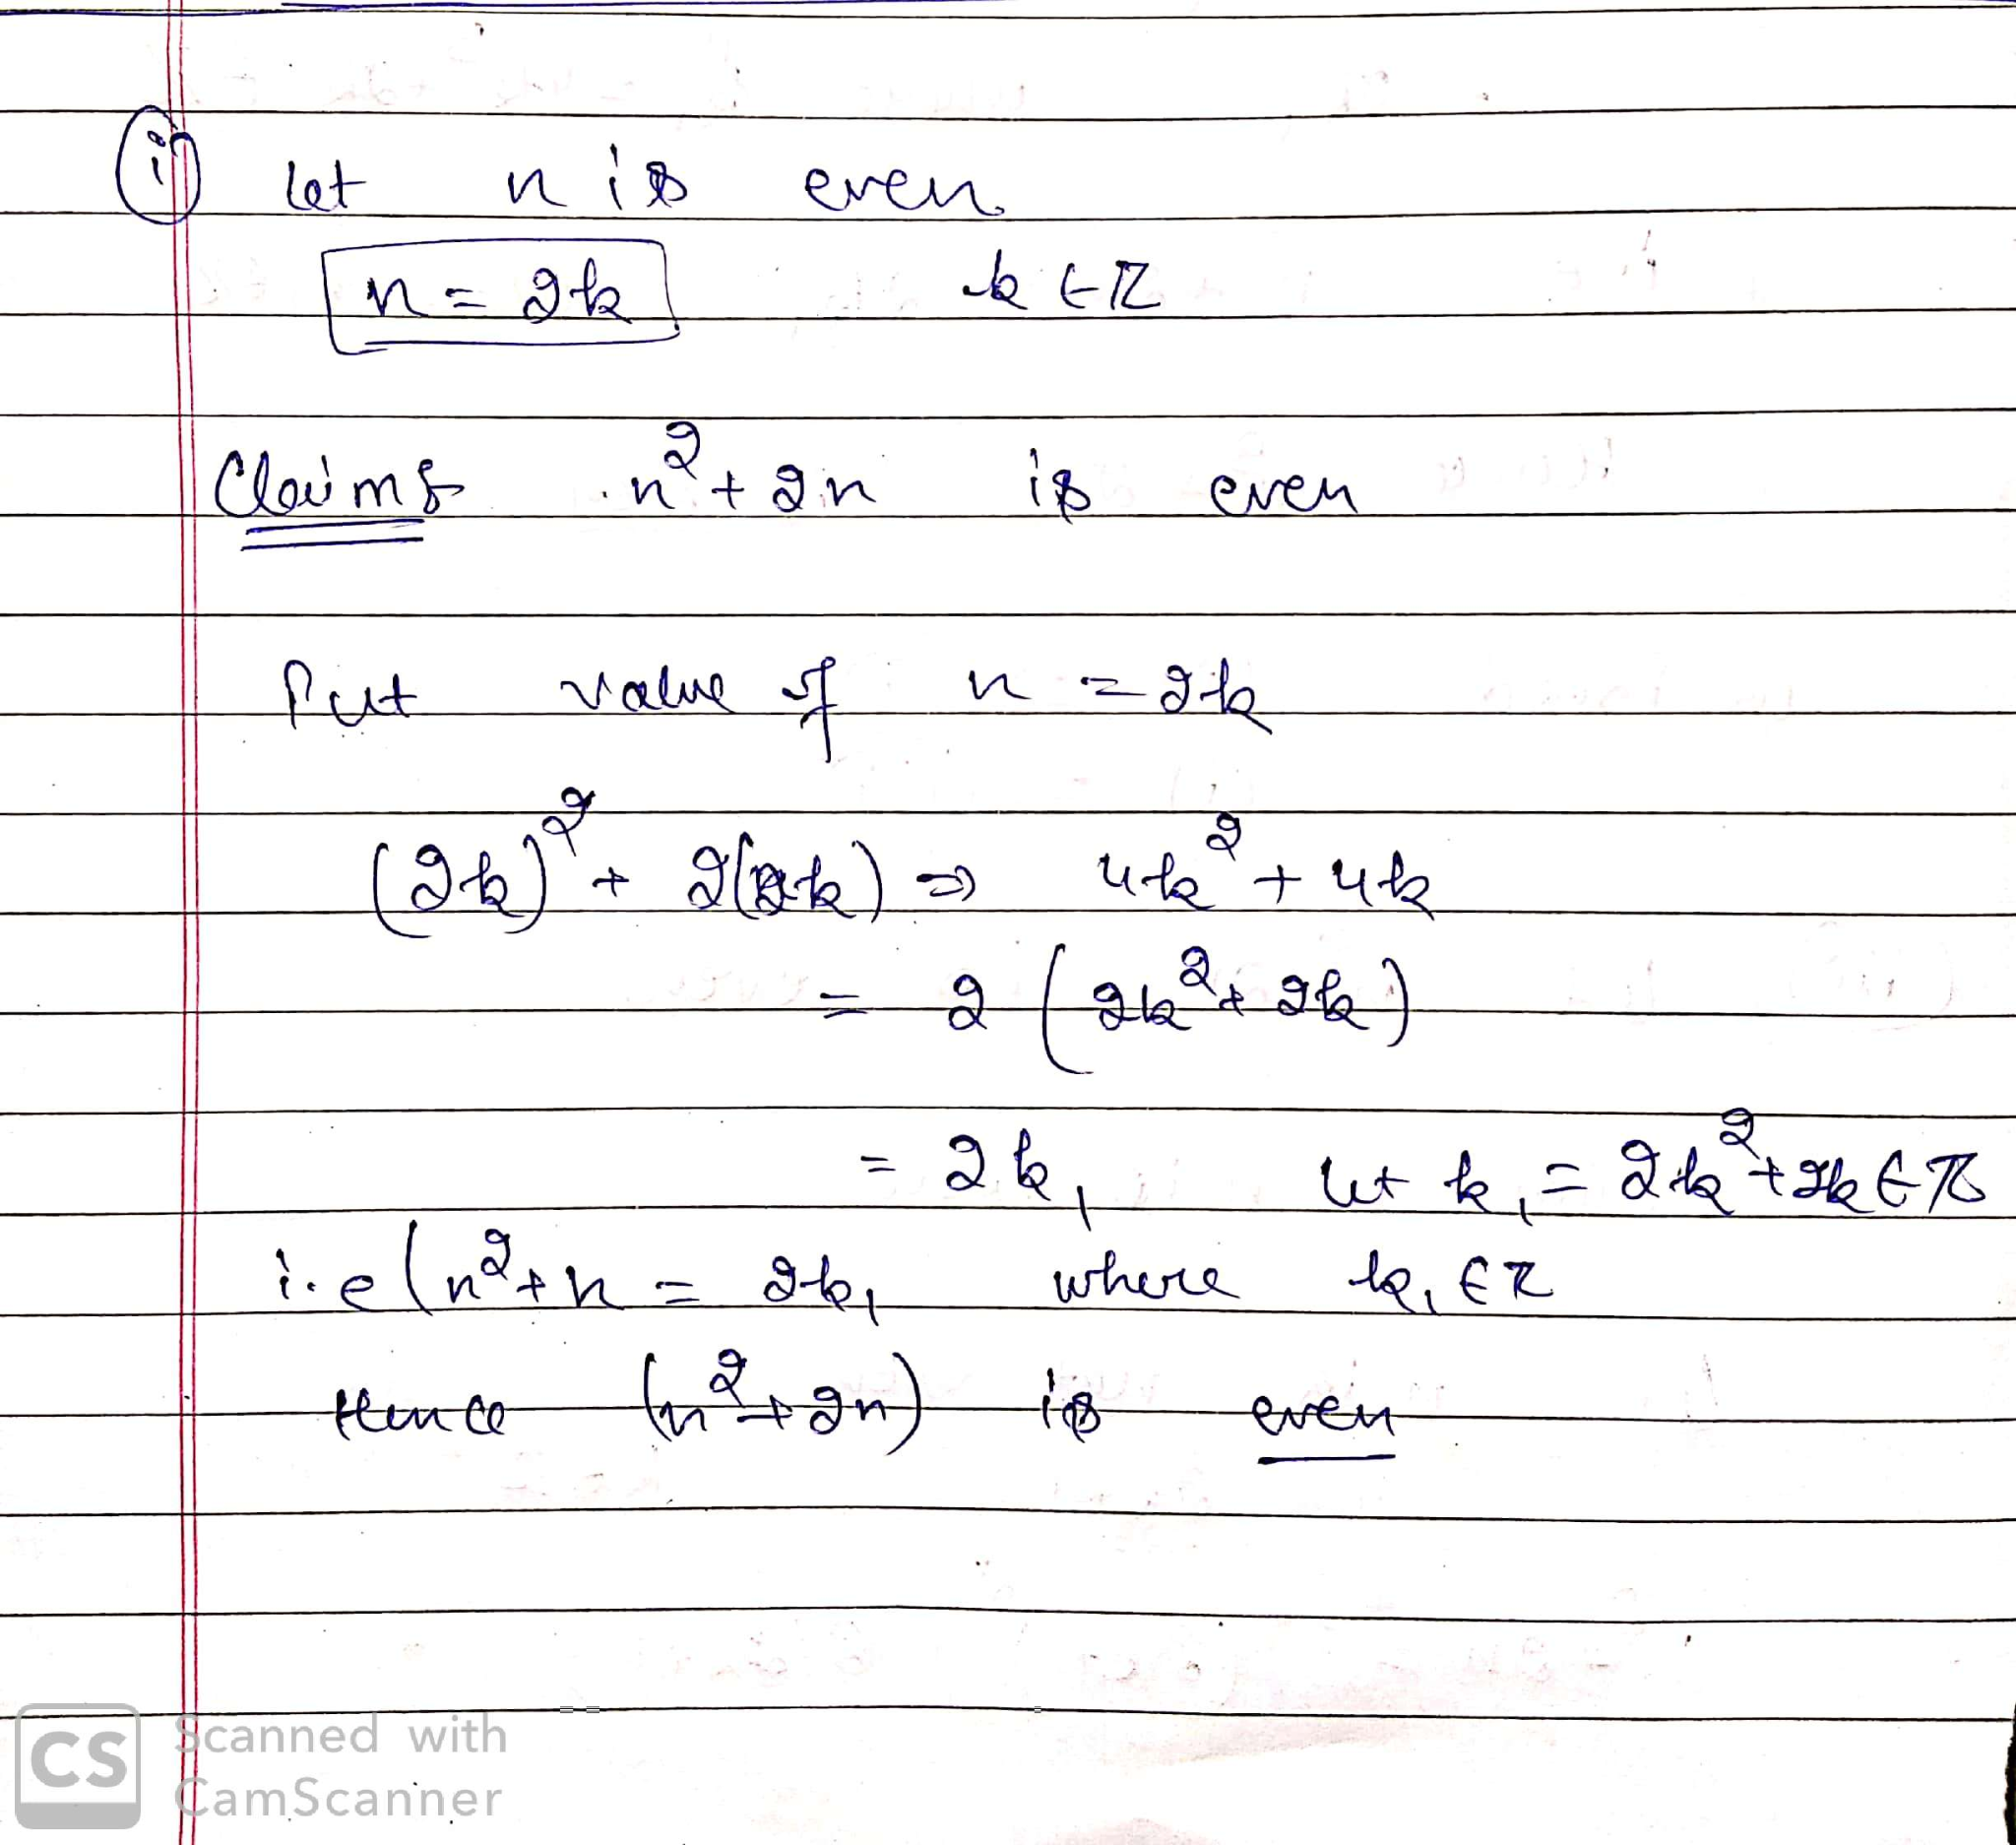 (i) let n is even
n = 2k k ∈ Z
Claim: n² + 2n is even
Put value of n = 2k
(2k)² + 2(2k) ⇒ 4k² + 4k
= 2 (2k² + 2k)
= 2k₁ let k₁ = 2k² + 2k ∈ Z
i.e (n² + n = 2k₁ where k₁ ∈ Z
Hence (n² + 2n) is even
CS Scanned with
CamScanner